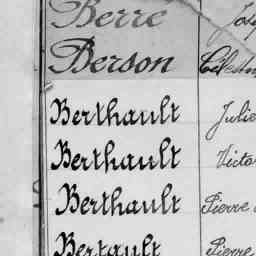 Berre
Berson
Berthault Julie
Berthault Victo
Berthault Pierre
Bertault Pierre